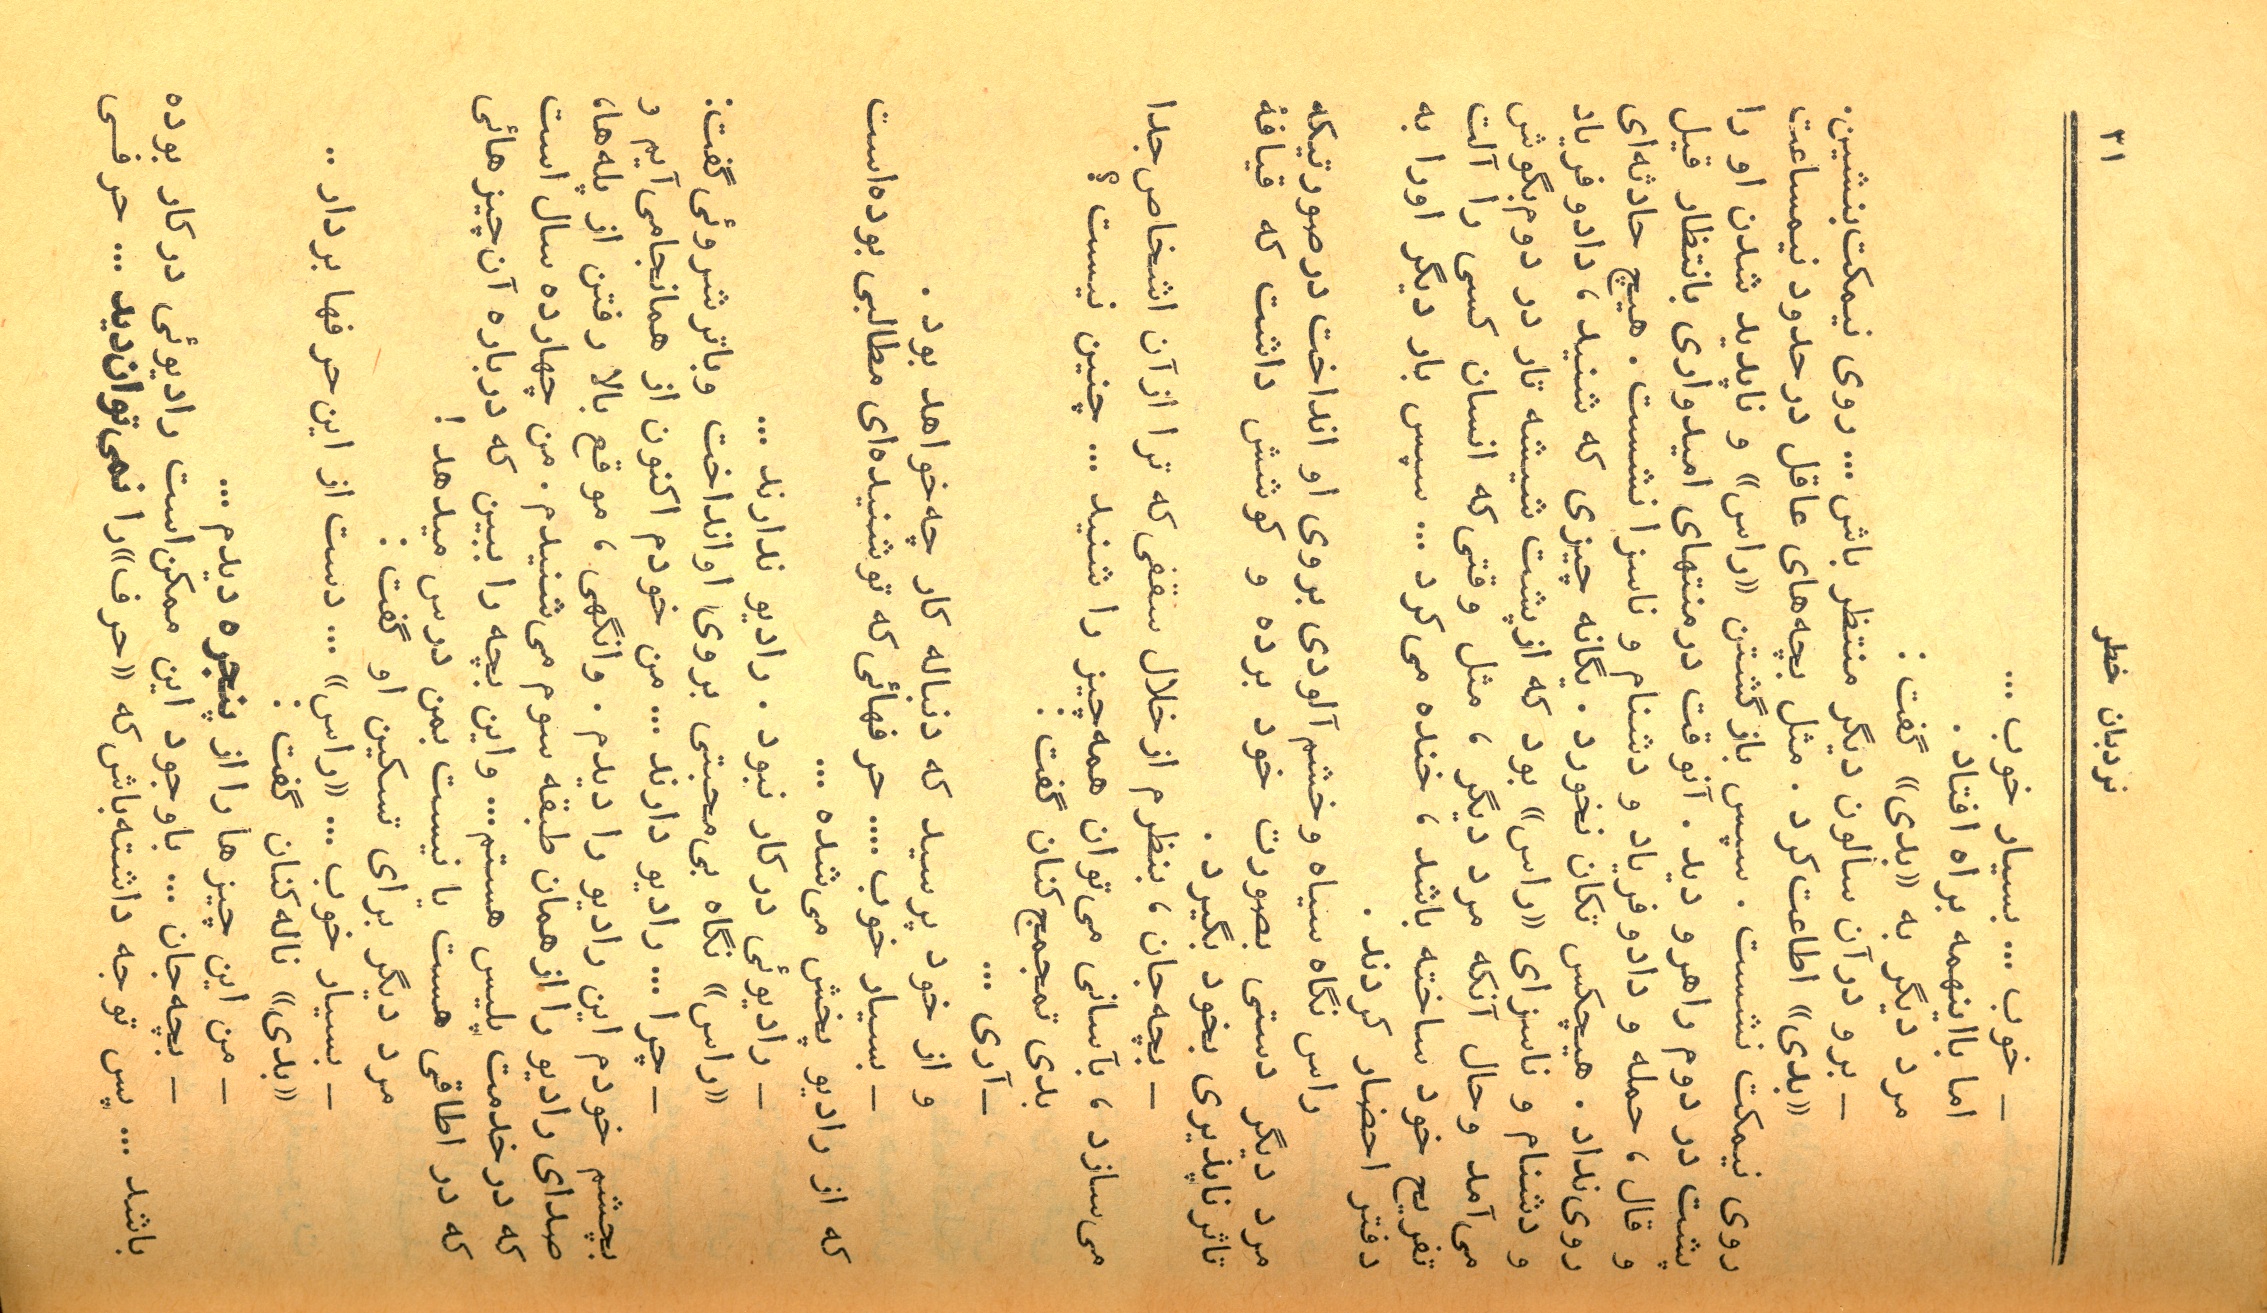 ۳۱
نردبان خطر
– خوب ... بسیار خوب ...
اما بااینهمه براه افتاد .
مرد دیگر به «بدی» گفت :
– برو درآن سالون دیگر منتظر باش ... روی نیمکت‌بنشین.
«بدی» اطاعت‌کرد . مثل بچه‌های عاقل درحدود نیمساعت
روی نیمکت نشست . سپس بازگشتن «راس» و ناپدید شدن او را
پشت در دوم راهرو دید . آنوقت درمنتهای امیدواری بانتظار قیل
و قال ، حمله و دادوفریاد و دشنام و ناسزا نشست . هیچ حادثه‌ای
روی‌نداد . هیچکس تکان نخورد . یگانه چیزی که شنید ، دادوفریاد
و دشنام و ناسزای «راس» بود که ازپشت شیشه تار در دوم‌بگوش
می‌آمد وحال آنکه مرد دیگر ، مثل وقتی‌که انسان کسی را آلت
تفریح خود ساخته باشد ، خنده می‌کرد ... سپس بار دیگر اورا به
دفتر احضار کردند .
راس نگاه سیاه وخشم‌آلودی بروی او انداخت درصورتیکه
مرد دیگر دستی بصورت خود برده و کوشش داشت که قیافهٔ
تاثرناپذیری بخود بگیرد .
– بچه‌جان ، بنظرم ازخلال سقفی‌که ترا ازآن اشخاص‌جدا
می‌سازد ، بآسانی می‌توان همه‌چیز راشنید ... چنین نیست ؟
بدی تمجمج‌کنان گفت :
– آری ...
و از خود پرسید که دنباله کار چه‌خواهد بود .
– بسیار خوب .... حرفهائی‌که توشنیده‌ای مطالبی بوده‌است
که از رادیو پخش می‌شده ...
– رادیوئی درکار نبود . رادیو ندارند ...
«راس» نگاه بی‌محبتی بروی اوانداخت وباترشروئی‌گفت:
– چرا ... رادیو دارند ... من خودم اکنون از همانجامی‌آیم و
بچشم خودم این رادیو را دیدم . وانگهی ، موقع بالا رفتن از پله‌ها،
صدای رادیو را ازهمان طبقه سوم می‌شنیدم . من چهارده سال است
که درخدمت پلیس هستم... واین بچه را ببین که درباره آن‌چیزهائی
که در اطاقی هست یا نیست بمن درس میدهد !
مرد دیگر برای تسکین او گفت :
– بسیار خوب ... «راس» ... دست از این‌حرفها بردار ..
«بدی» ناله‌کنان گفت :
– من این چیزها را از پنجره دیدم ...
– بچه‌جان ... باوجود این ممکن‌است رادیوئی درکار بوده
باشد ... پس توجه داشته‌باش‌که «حرف»را نمی‌توان‌دید ... حرفسی